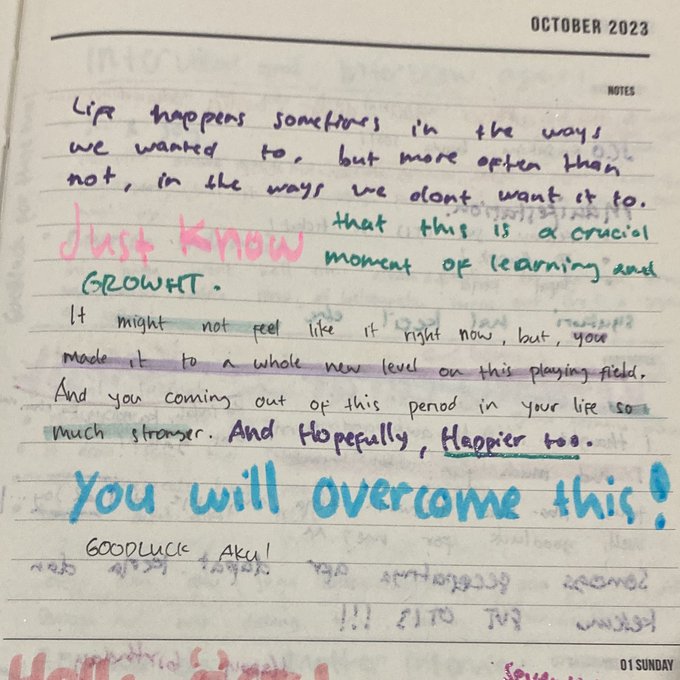 OCTOBER 2023
NOTES
Life happens sometimes in the ways
we wanted to, but more often than
not, in the ways we dont want it to.
Just Know that this is a crucial
moment of learning and
GROWHT.
It might not feel like it right now, but, you
made it to a whole new level on this playing field.
And you coming out of this period in your life so
much stronger. And Hopefully, Happier too.
you will overcome this!
GOODLUCK AKU!
01 SUNDAY